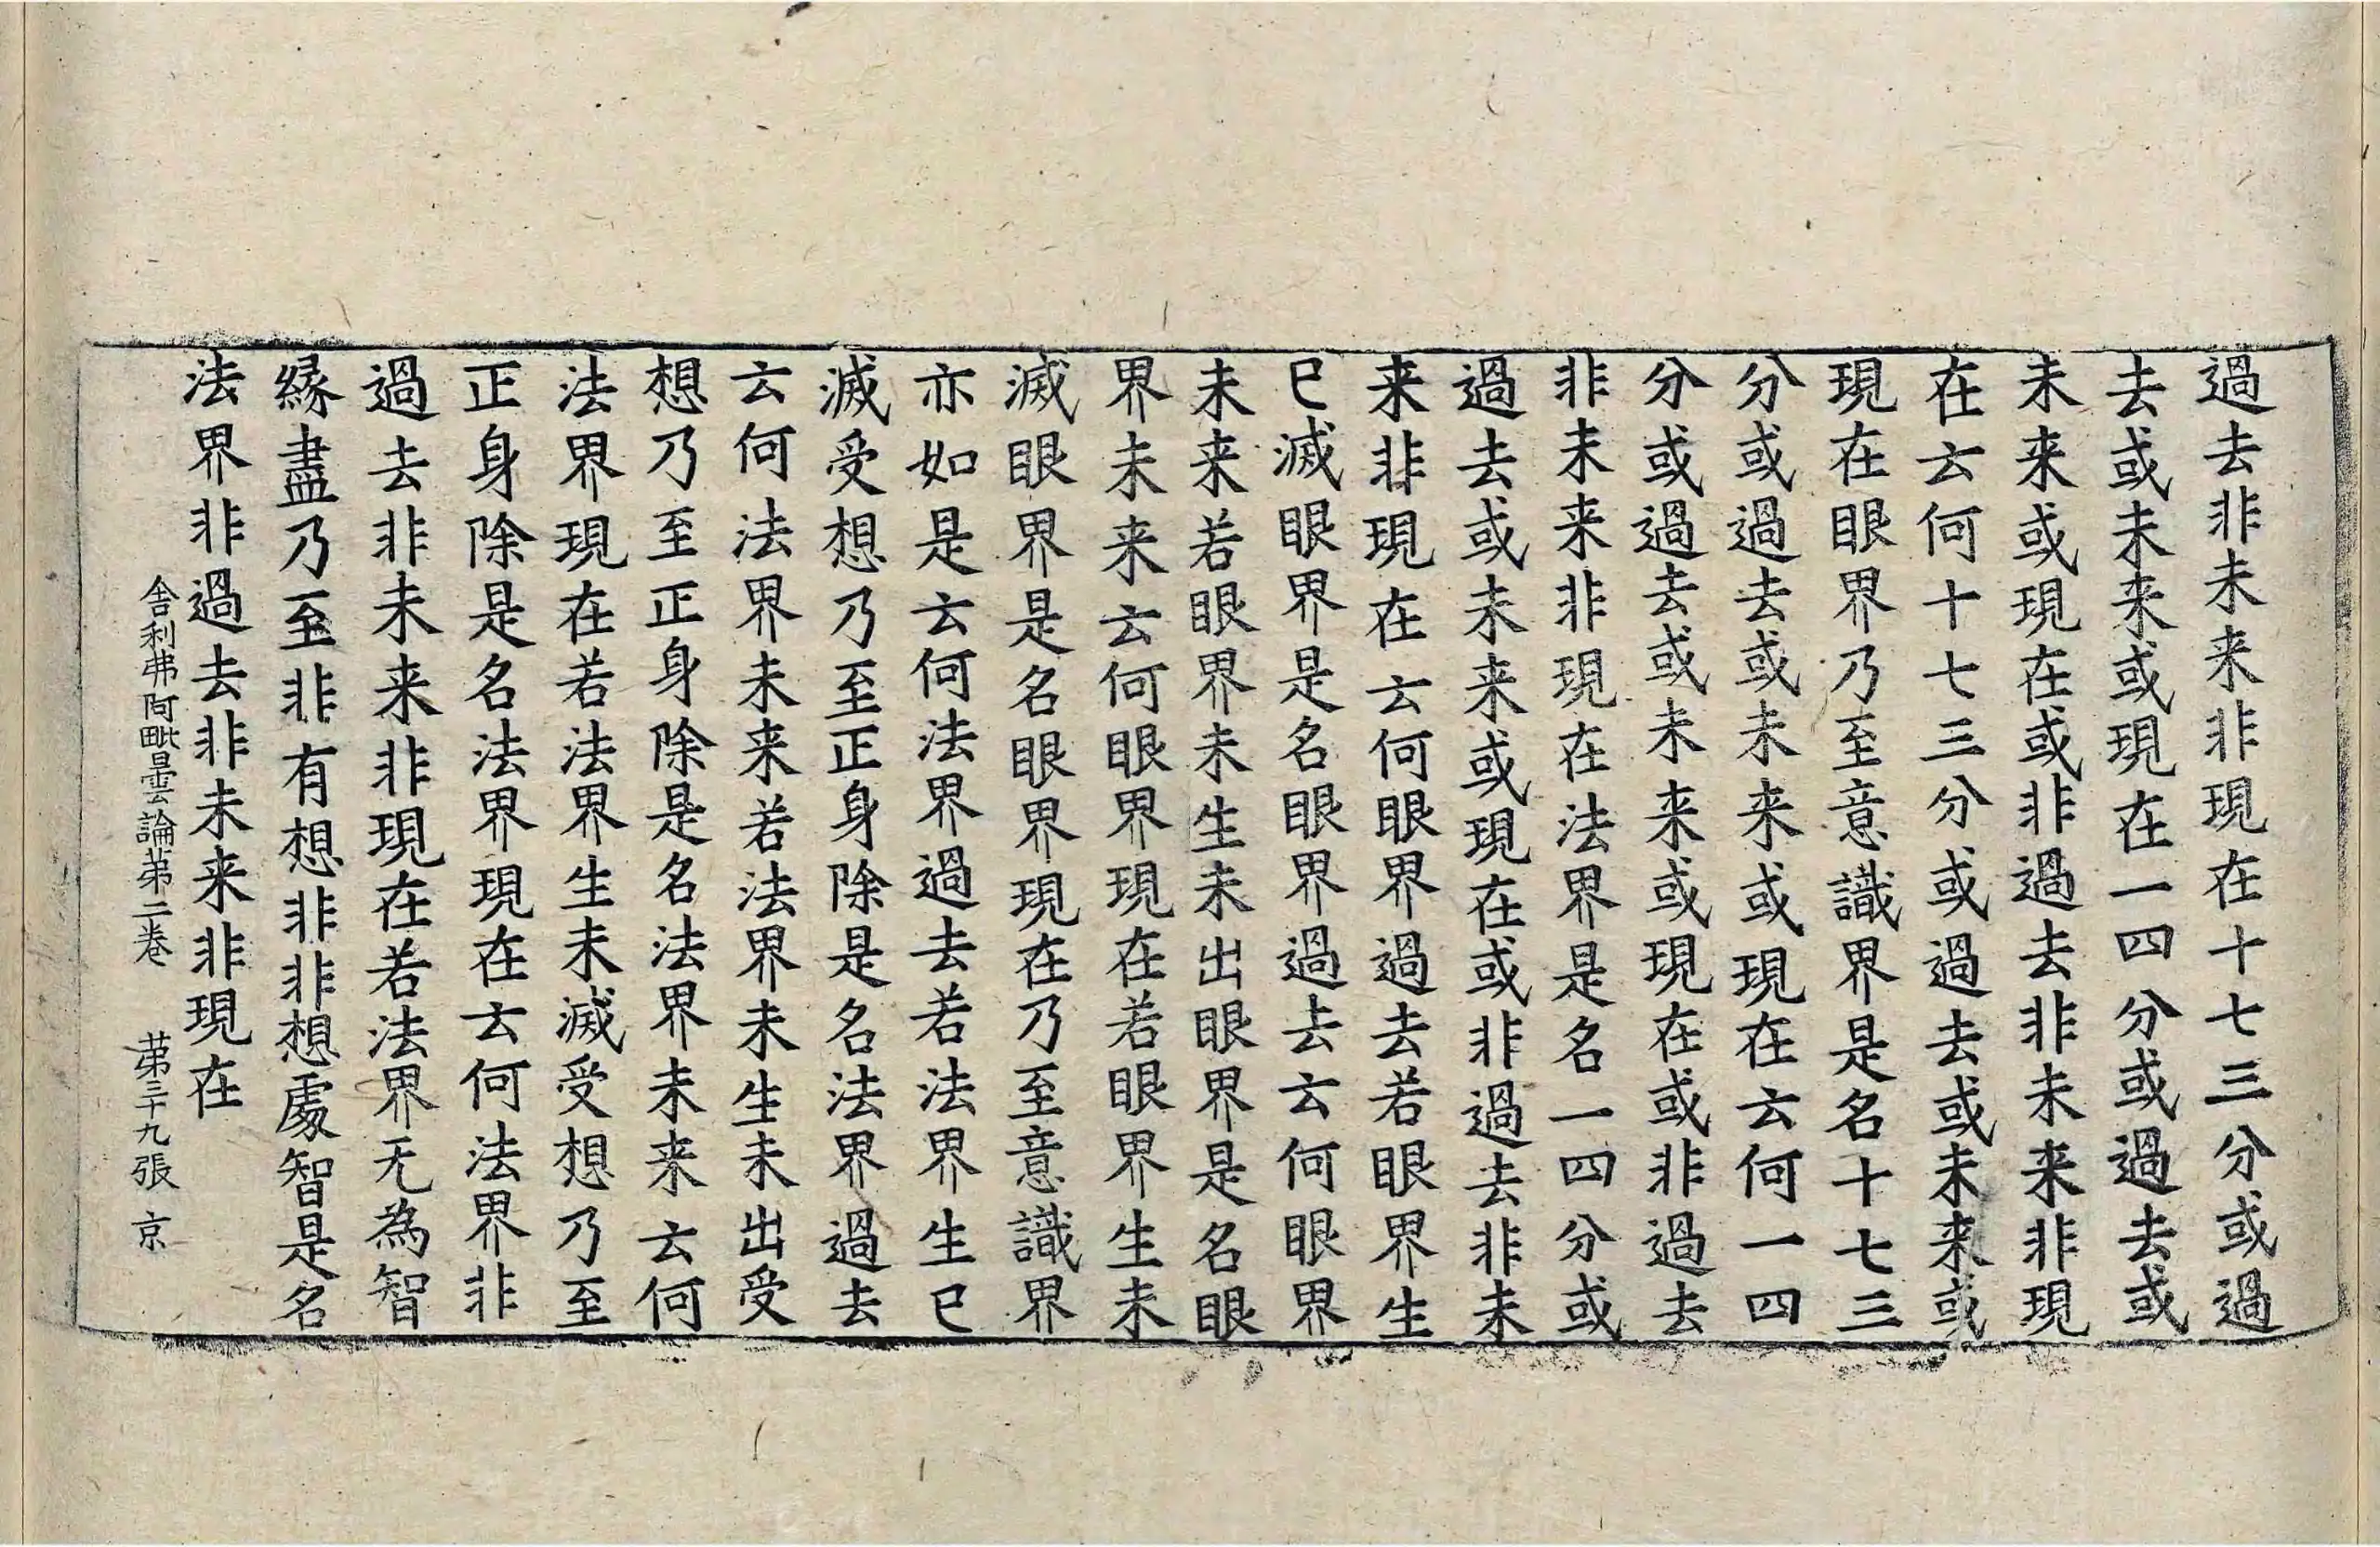 過去非未来非現在十七三分或過
去或未来或現在一四分或過去或
未来或現在或非過去非未来非現
在云何十七三分或過去或未来或
現在眼界乃至意識界是名十七三
分或過去或未来或現在云何一四
分或過去或未来或現在或非過去
非未来非現在法界是名一四分或
過去或未来或現在或非過去非未
来非現在云何眼界過去若眼界生
已滅眼界是名眼界過去云何眼界
未来若眼界未生未出眼界是名眼
界未来云何眼界現在若眼界生未
滅眼界是名眼界現在乃至意識界
亦如是云何法界過去若法界生已
滅受想乃至正身除是名法界過去
云何法界未来若法界未生未出受
想乃至正身除是名法界未来云何
法界現在若法界生未滅受想乃至
正身除是名法界現在云何法界非
過去非未来非現在若法界无為智
縁盡乃至非有想非非想處智是名
法界非過去非未来非現在
舎利弗阿毗曇論苐二卷 苐三十九張 京